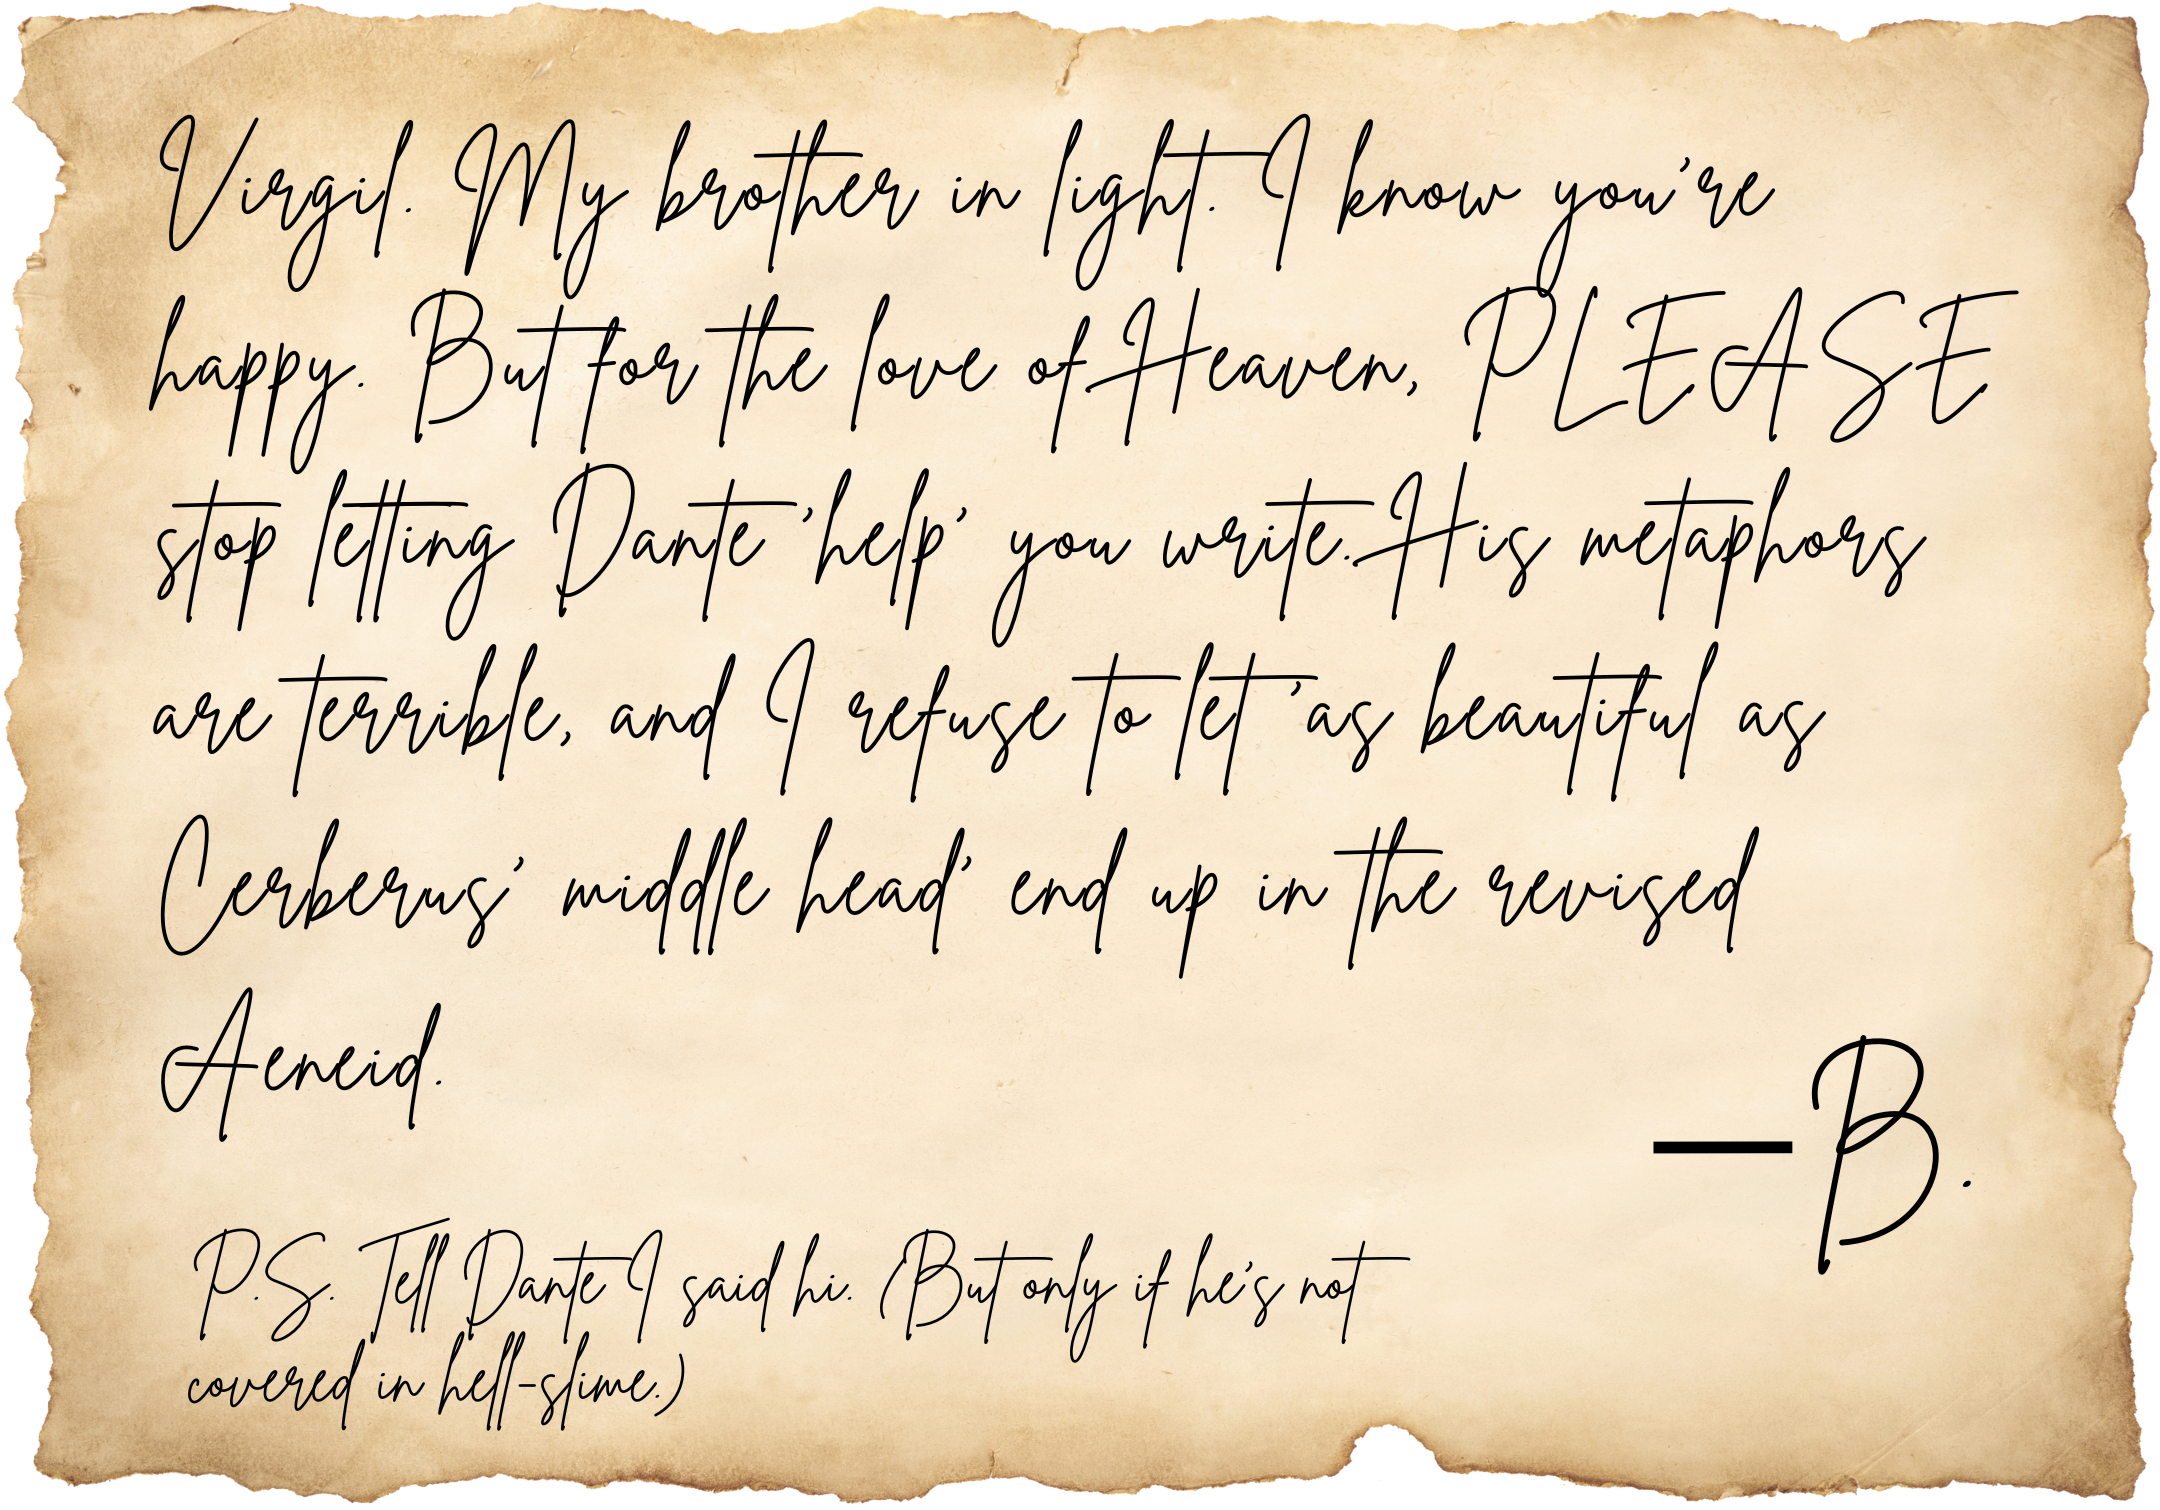 Virgil. My brother in light. I know you're
happy. But for the love of Heaven, PLEASE
stop letting Dante 'help' you write. His metaphors
are terrible, and I refuse to let 'as beautiful as
Cerberus' middle head' end up in the revised
Aeneid.
—B.
P.S. Tell Dante I said hi. (But only if he's not
covered in hell-slime.)